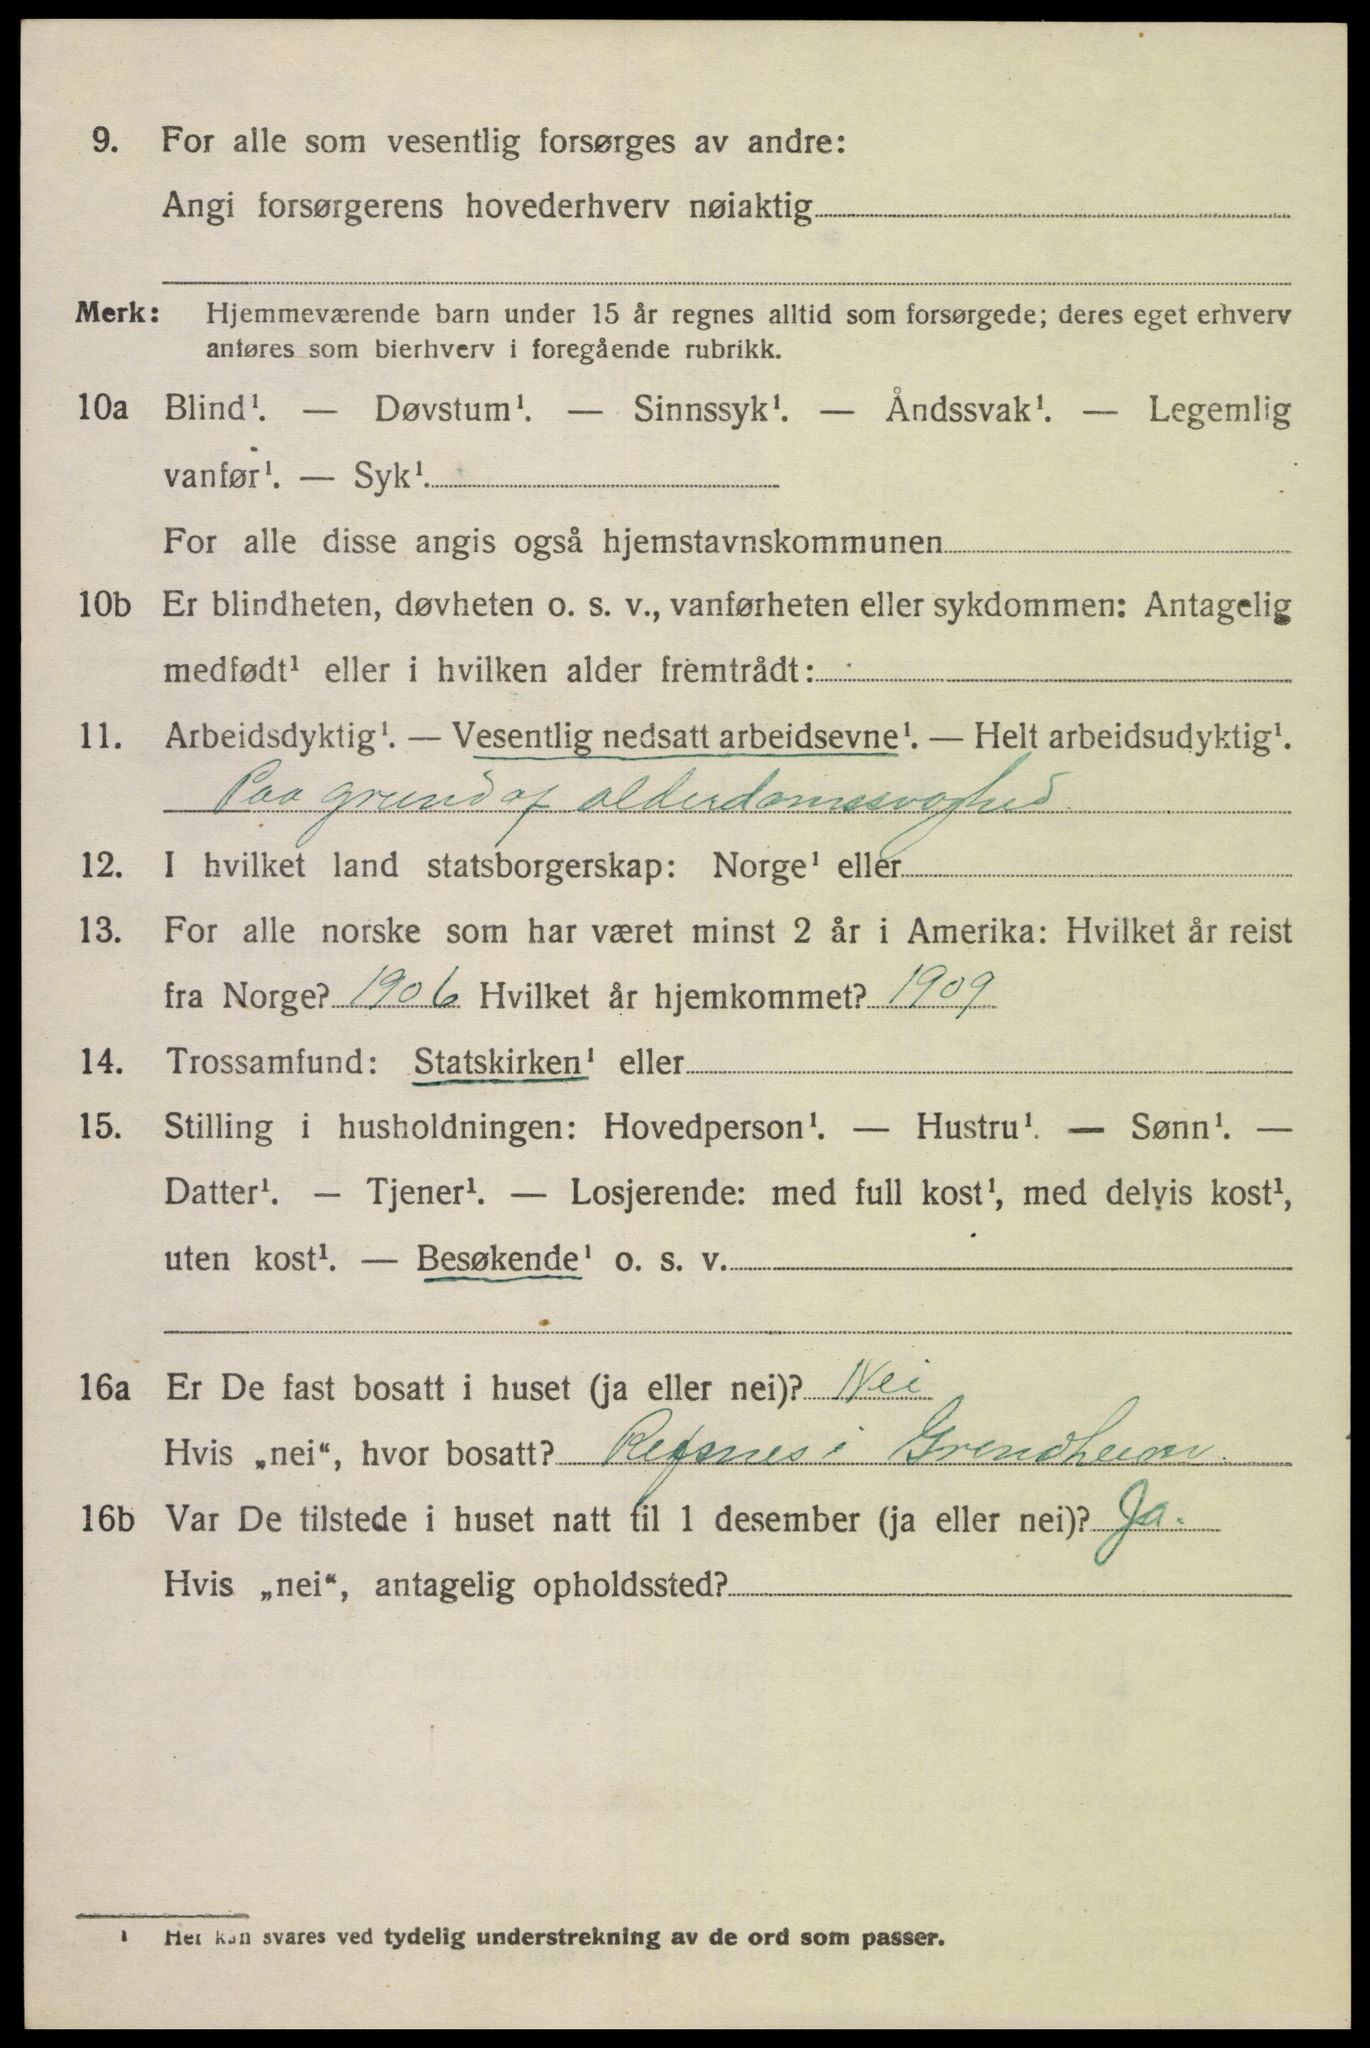 9. For alle som vesentlig forsørges av andre:
Angi forsørgerens hovederhverv nøiaktig
Merk: Hjemmeværende barn under 15 år regnes alltid som forsørgede; deres eget erhverv
anføres som bierhverv i foregående rubrikk.
10a Blind¹. — Døvstum¹. — Sinnssyk¹. — Åndssvak¹. — Legemlig
vanfør¹. — Syk¹.
For alle disse angis også hjemstavnskommunen
10b Er blindheten, døvheten o. s. v., vanførheten eller sykdommen: Antagelig
medfødt¹ eller i hvilken alder fremtrådt:
11. Arbeidsdyktig¹. — Vesentlig nedsatt arbeidsevne¹. — Helt arbeidsudyktig¹.
Paa grund af alderdomssvaghed
12. I hvilket land statsborgerskap: Norge¹ eller
13. For alle norske som har været minst 2 år i Amerika: Hvilket år reist
fra Norge? 1906 Hvilket år hjemkommet? 1909
14. Trossamfund: Statskirken¹ eller
15. Stilling i husholdningen: Hovedperson¹. — Hustru¹. — Sønn¹. —
Datter¹. — Tjener¹. — Losjerende: med full kost¹, med delvis kost¹,
uten kost¹. — Besøkende¹ o. s. v.
16a Er De fast bosatt i huset (ja eller nei)? Nei
Hvis „nei“, hvor bosatt? Refsnes i Grendheim.
16b Var De tilstede i huset natt til 1 desember (ja eller nei)? Ja.
Hvis „nei“, antagelig opholdssted?
¹ Her kan svares ved tydelig understrekning av de ord som passer.